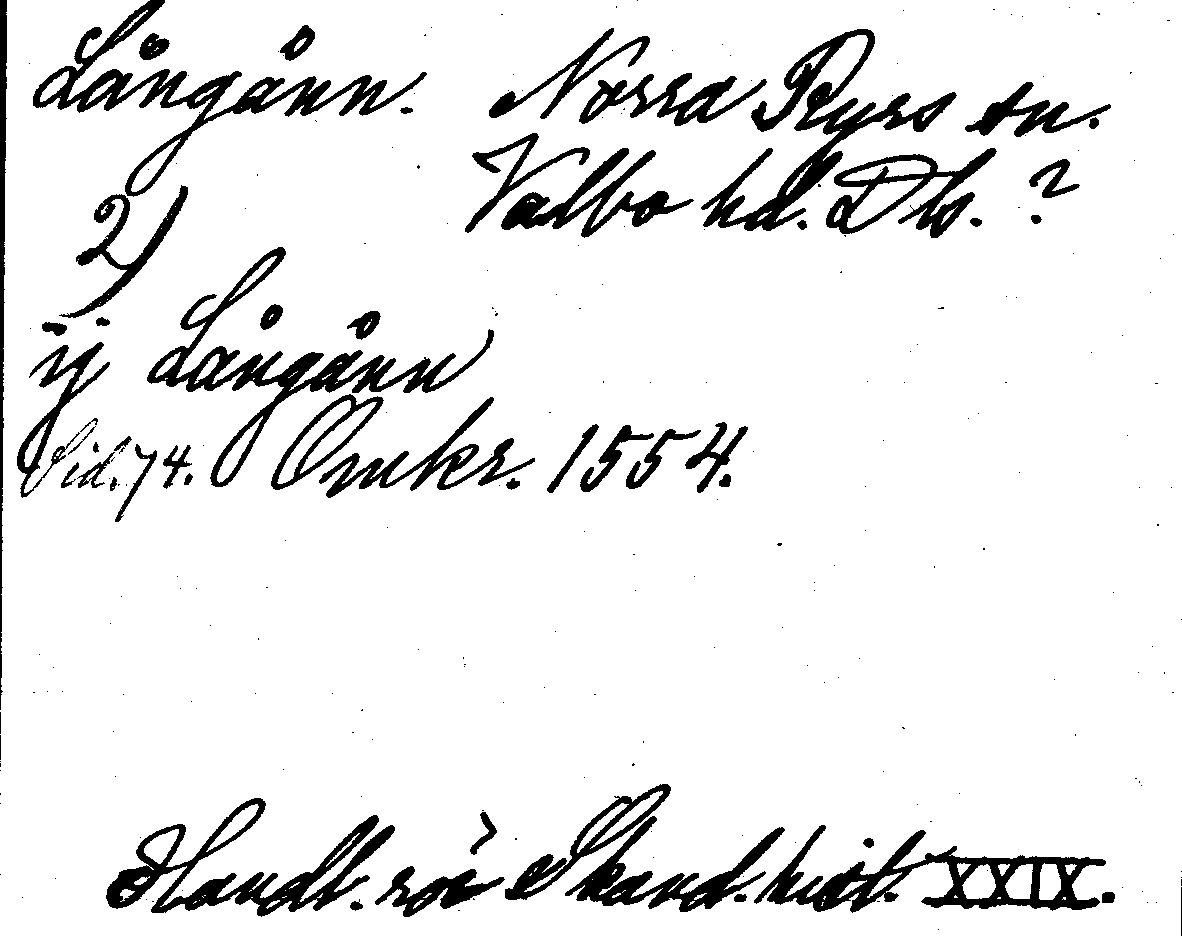 Långånn. Norra Ryrs sn.
Valbo hd. Dls. ?
2)
ij Långånn
Sid. 74. Omkr. 1554.
Handl. rör Skand. hist. XXIX.